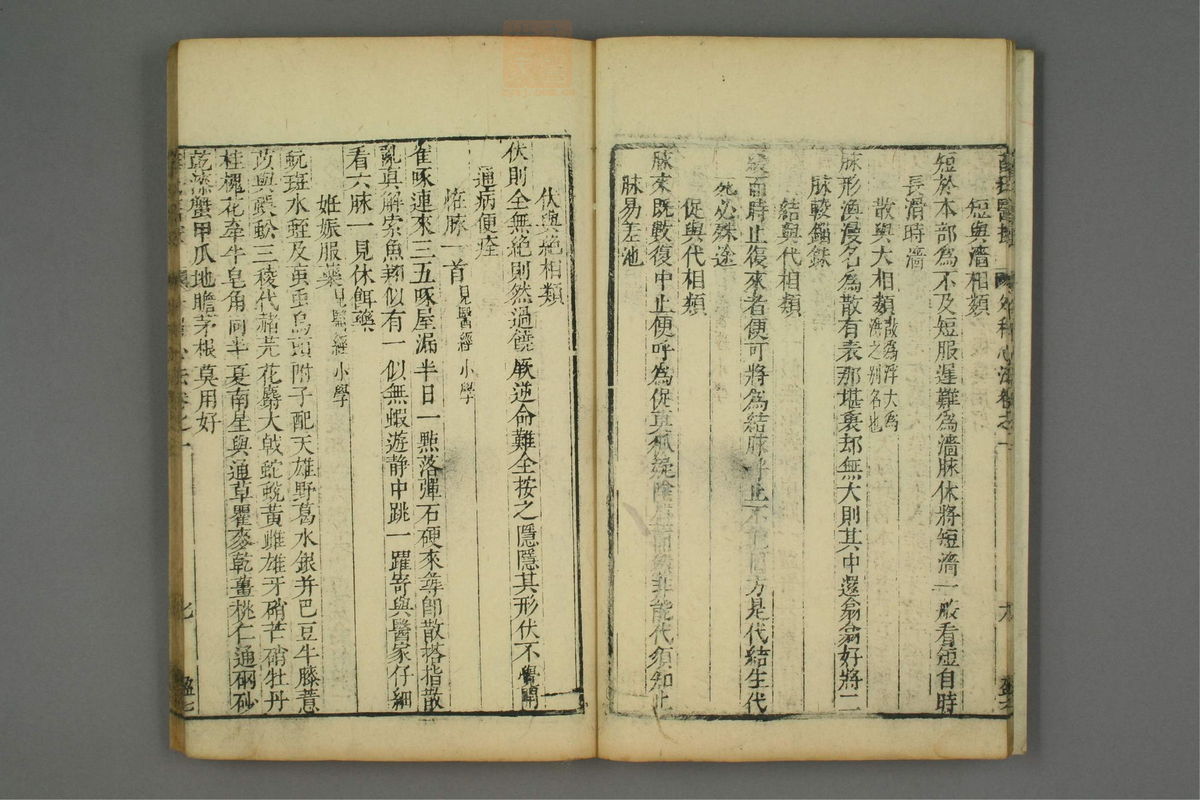 短與濇相類
短於本部為不及短服遲難為濇脉休將短濇一般看短自時
長濇時濇
散與大相類散為浮大為
洪之別名也
脉形渙漫名為散有表那堪裏却無大則其中還翕翕好將二
脉較錙銖
結與代相類
緩而時止復來者便可將為結脉呼止不能回方是代結生代
死必殊途
促與代相類
脉來既數復中止便呼為促真
非能代須知止
脉易差池
伏與絕相類
伏則全無絕則然過饒厥逆命難全按之隱隱其形伏不覺開
通病便痊
恠脉一首見醫經小學
雀啄連來三五啄屋漏半日一㸃落彈石硬來尋即散搭指散
亂真解索魚翔似有一似無蝦遊静中跳一躍寄與醫家仔細
看六脉一見休餌藥
姙娠服藥見醫經小學
蚖斑水蛭及䖟虫烏頭附子配天雄野葛水銀并巴豆牛膝薏
苡與蜈蚣三稜代赭芫花麝大戟蛇蛻黃雌雄牙硝芒硝牡丹
桂槐花牽牛皂角同半夏南星與通草瞿麥乾薑桃仁通硇砂
乾漆蟹甲爪地膽茅根莫用好